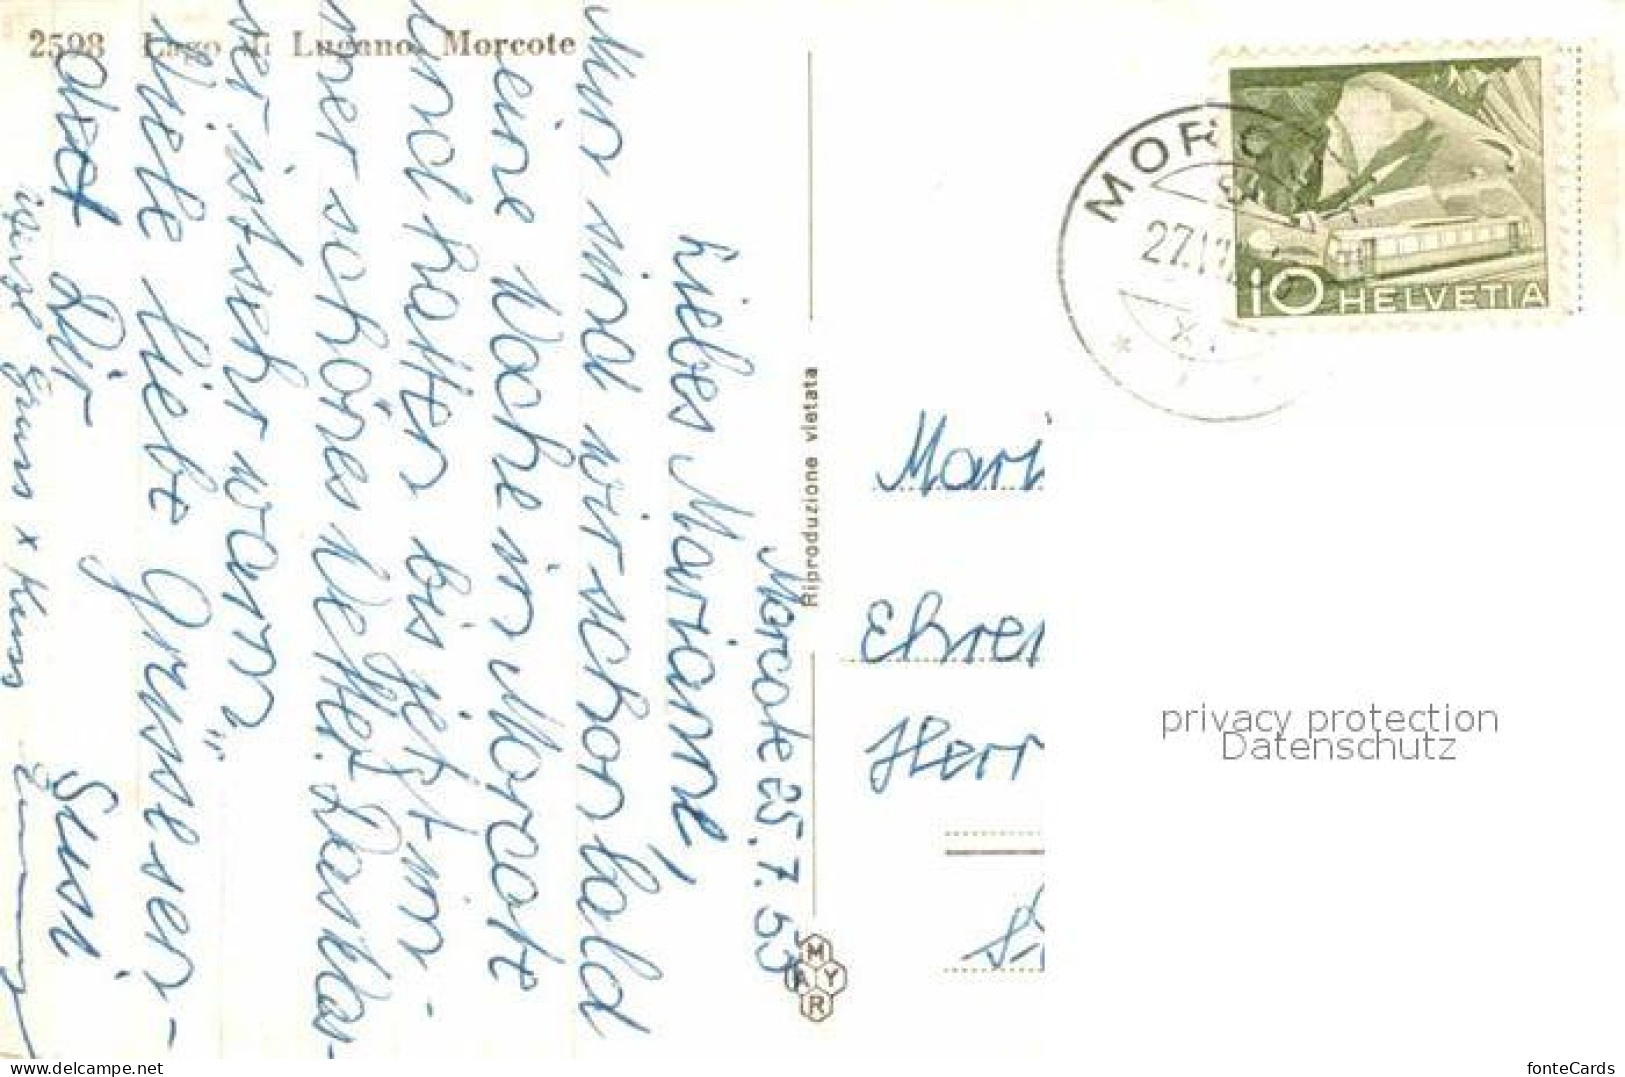 2598 Lago di Lugano, Morcote
Morcote 25.7.53
Liebes Marianne,
Nun sind wir schon bald
eine Woche in Morcote
und hatten bis jetzt im-
mer schönes Wetter. Das Was-
ser ist sehr warm."
Viele liebe Grüsse sen-
det Dir
Susi
Gruss x Kuss
Riproduzione vietata
MAYR
MORCO
27.VII.53
X
10 HELVETIA
Mari
Ehren
Herr
privacy protection
Datenschutz
www.delcampe.net
fonteCards